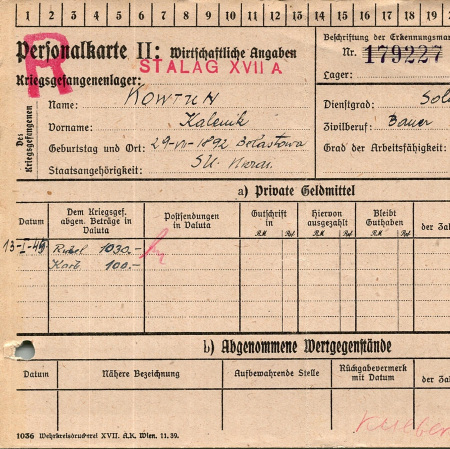 1 2 3 4 5 6 7 8 9 10 11 12 13 14 15 16 17 18 19
Personalkarte II: Wirtschaftliche Angaben
Beschriftung der Erkennungsmar
Nr. 179227
R
Kriegsgefangenenlager: STALAG XVII A
Lager:
Des Kriegsgefangenen
Name: KOWTUN
Dienstgrad: Sol
Vorname: Kalenik
Zivilberuf: Bauer
Geburtstag und Ort: 29-VII-1892
Grad der Arbeitsfähigkeit:
Staatsangehörigkeit: SU.
a) Private Geldmittel
Datum
Dem Kriegsgef. abgen. Beträge in Valuta
Postsendungen in Valuta
Gutschrift in RM Rpf.
Hiervon ausgezahlt RM Rpf.
Bleibt Guthaben RM Rpf.
der Zah
13-I-45 Rubel 1030.-
Karb. 100.-
b) Abgenommene Wertgegenstände
Datum
Nähere Bezeichnung
Aufbewahrende Stelle
Rückgabevermerk mit Datum
der Za
1036 Wehrkreisdruckerei XVII. A.K. Wien. 11.39.